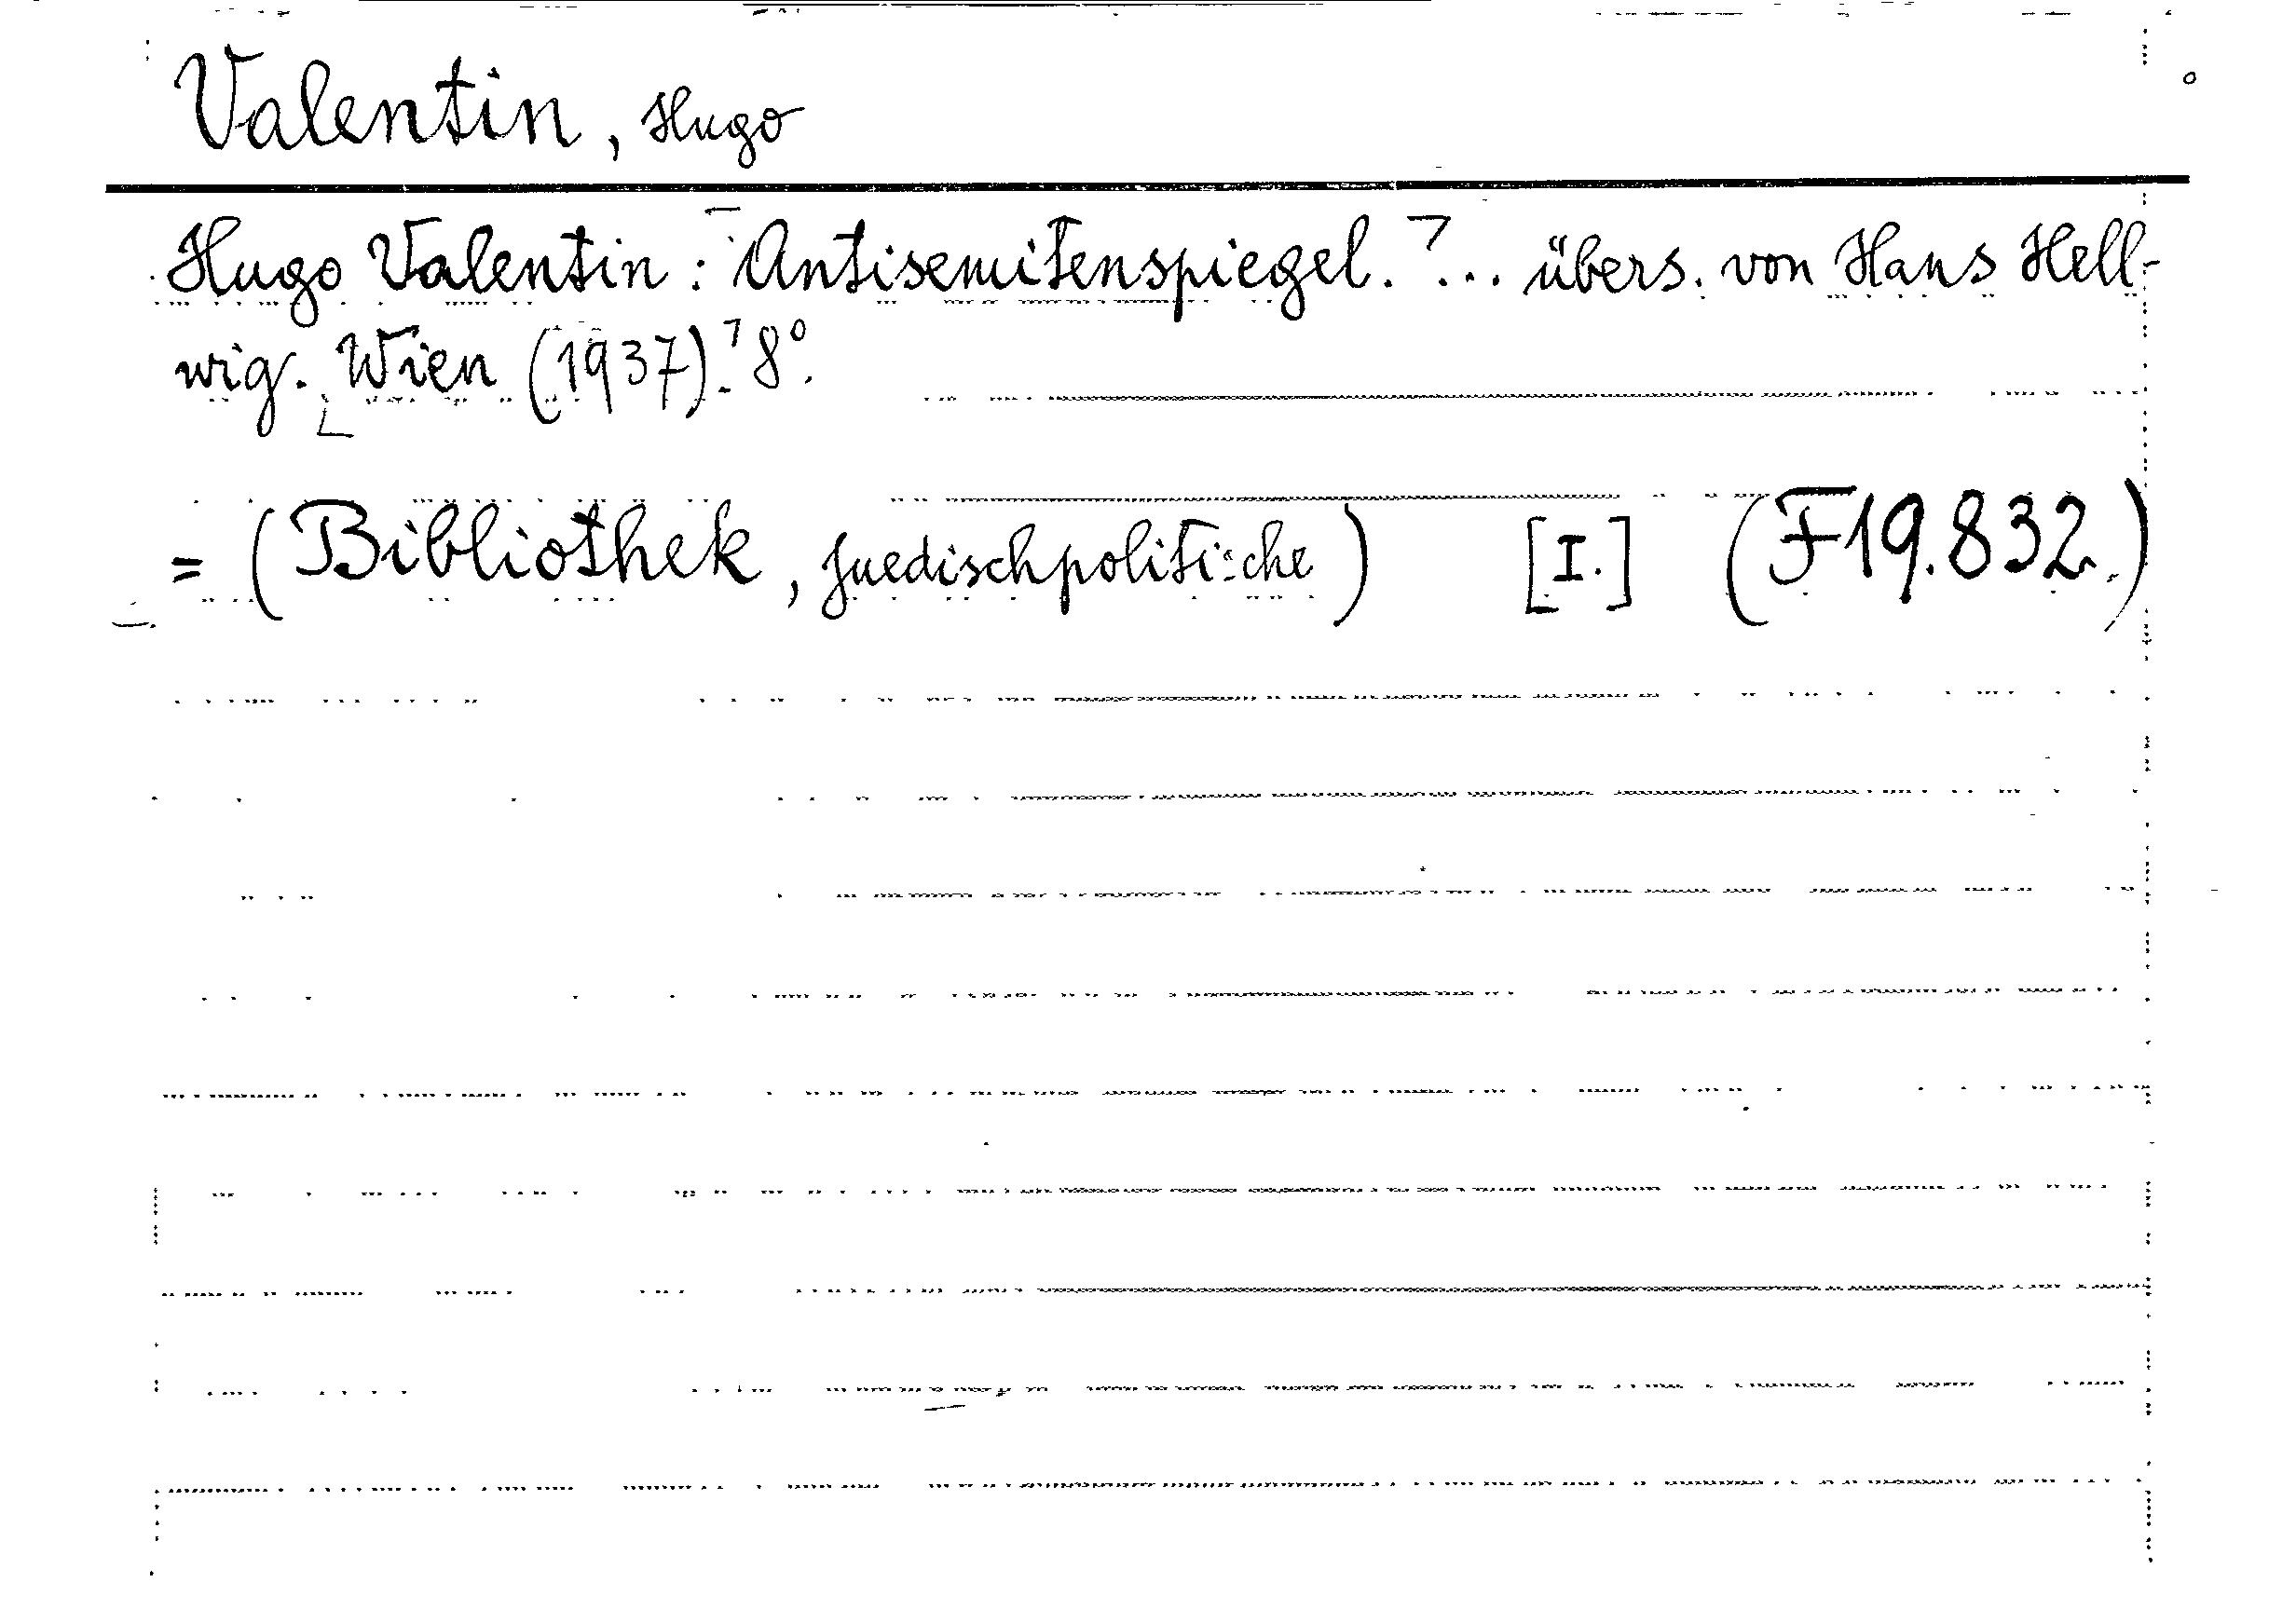 Valentin, Hugo
Hugo Valentin: Antisemitenspiegel. ... übers. von Hans Hell-
wig. Wien (1937). 8°.
= (Bibliothek, juedischpolitische) [I.] (F19.832.)